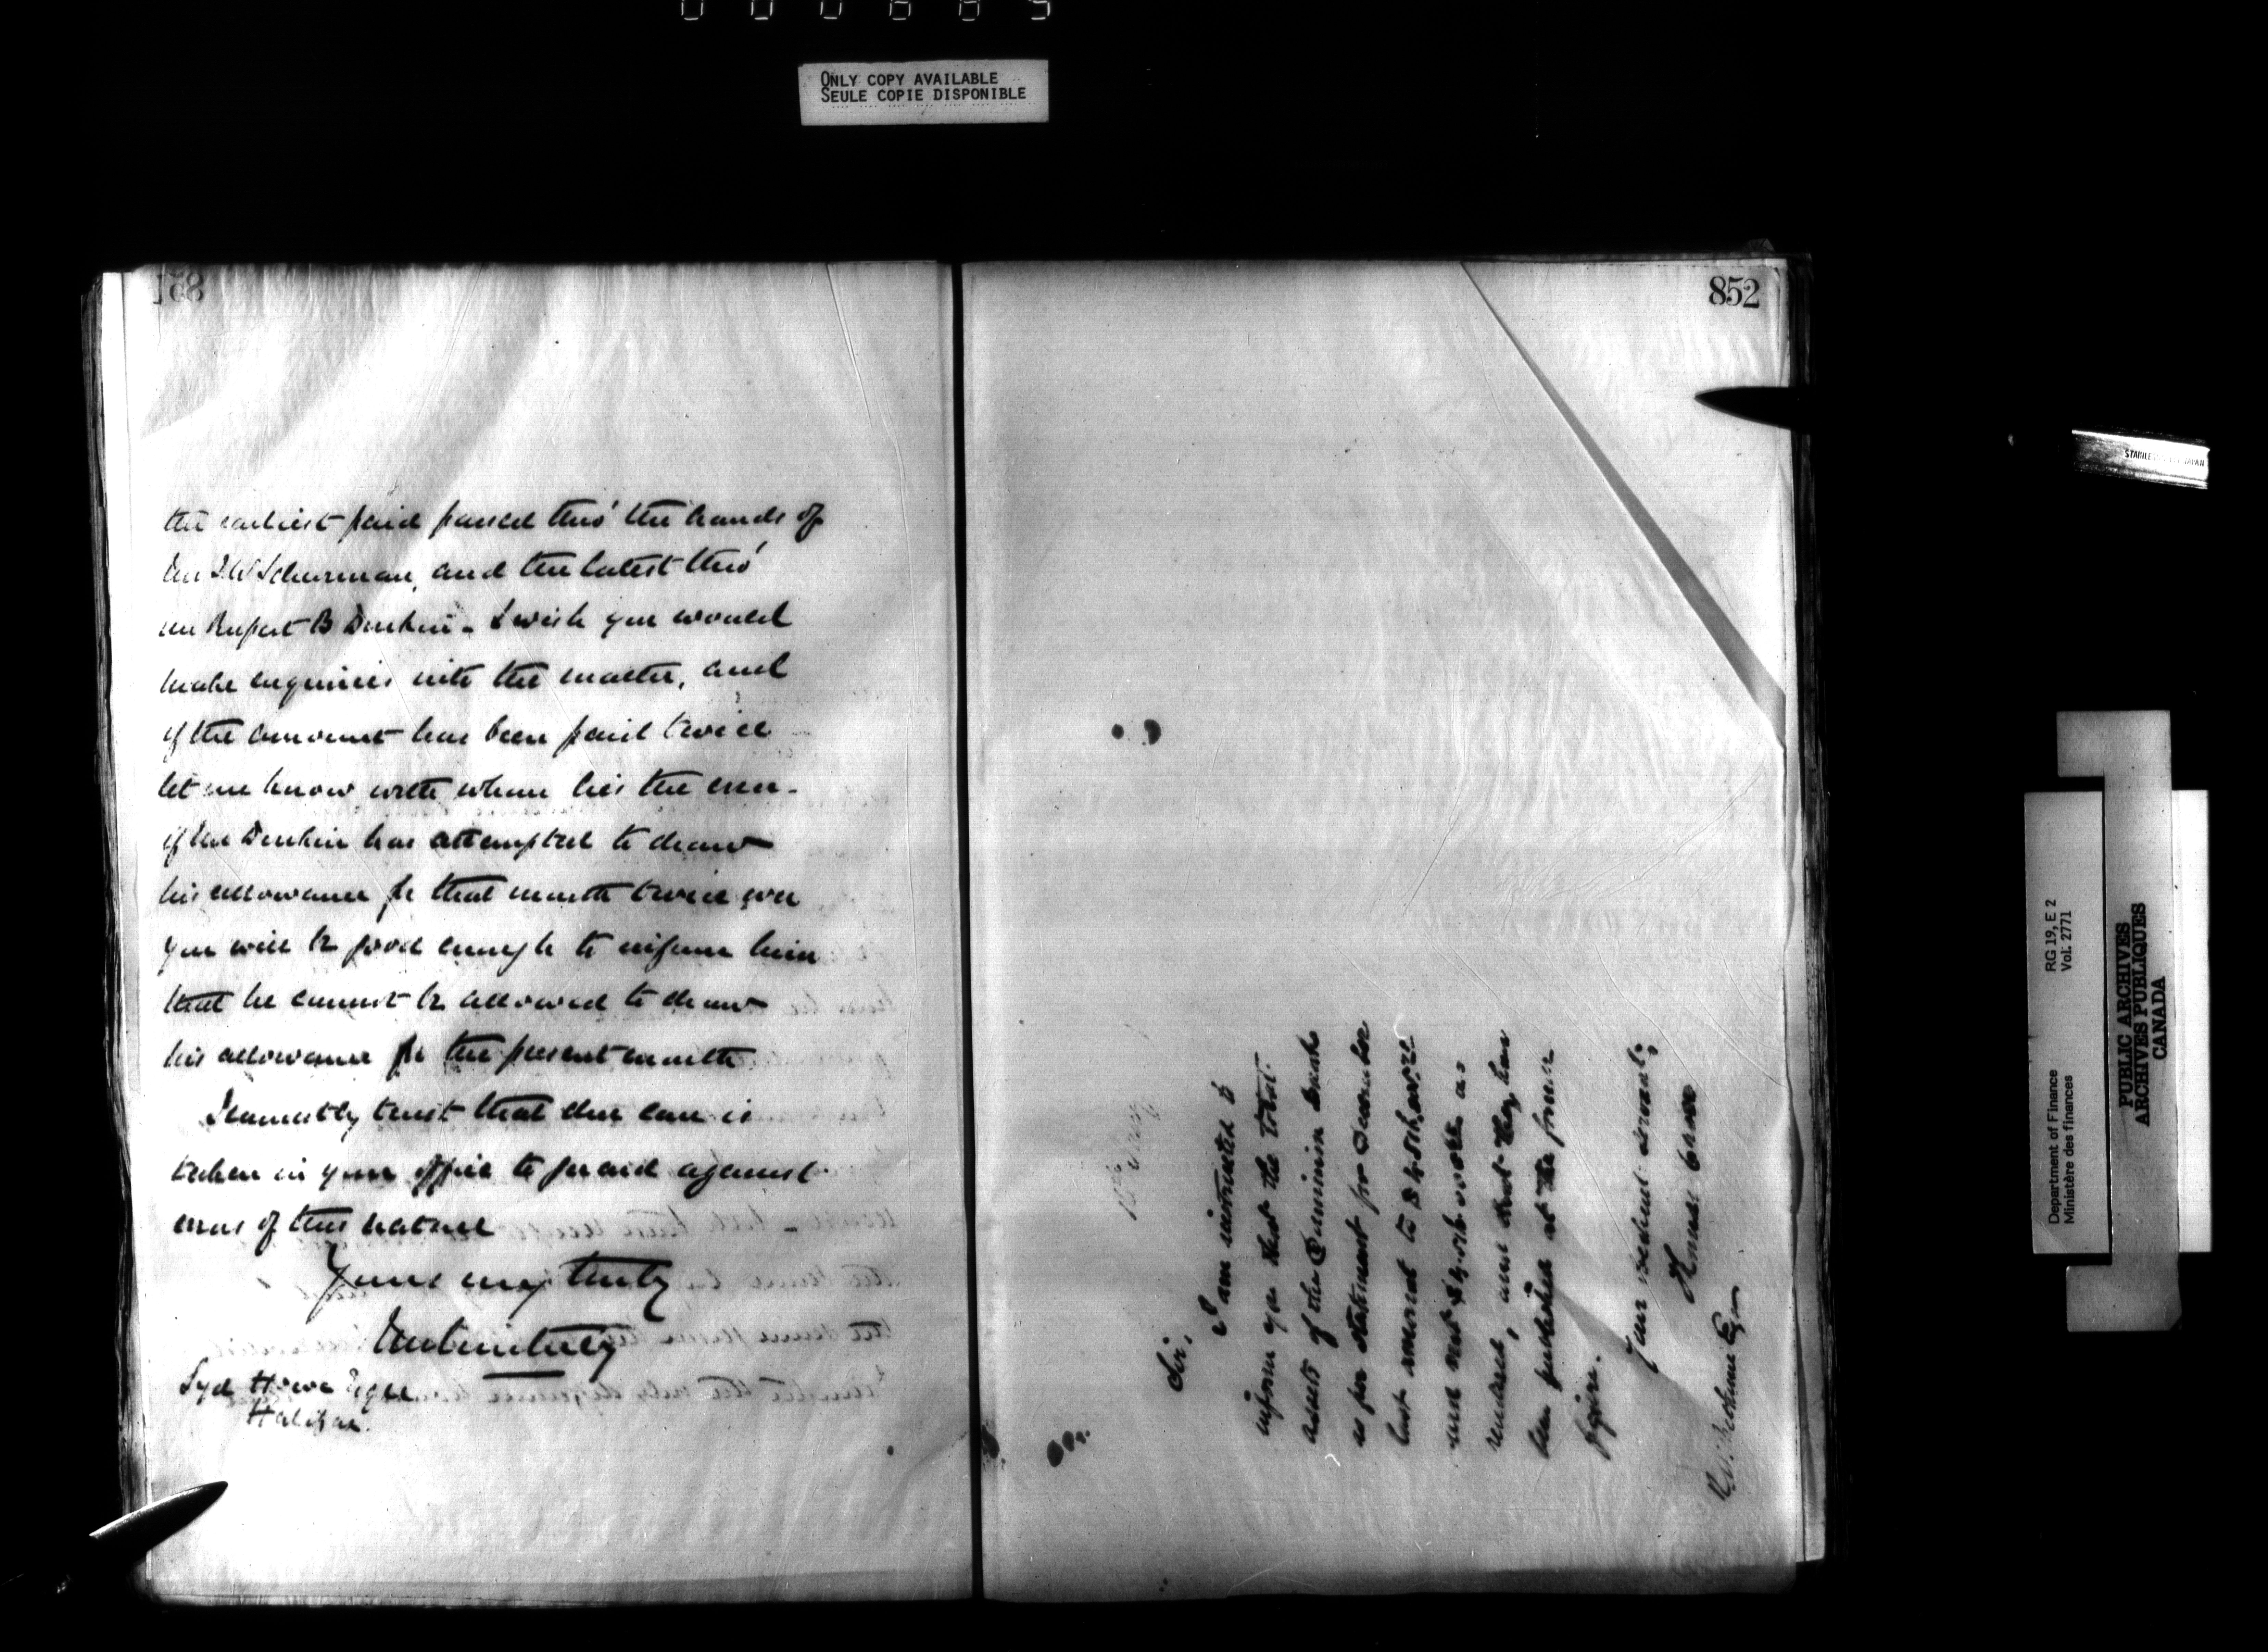 ONLY COPY AVAILABLE
SEULE COPIE DISPONIBLE
851
the earliest paid passed thro' the hands of
Mr Schurman, and the latest thro'
Mr Rupert B - I wish you would
make enquiries into the matter, and
if the amount has been paid twice
let me know with whom lies the error -
if Mr has attempted to draw
his allowance for that month twice over
you will be good enough to inform him
that he cannot be allowed to draw
his allowance for the present month
I earnestly trust that due care is
taken in your office to guard against
errors of this nature
Yours very truly
Syd Howe Esqre
Halifax.
852
Sir,
I am instructed to
inform you that the total
assets of the Dominion Bank
as per statement for December
last amount to
and not as
rendered, and that they have
been published at the former
figure.
Your obedient servant,
Esq
Department of Finance RG 19, E 2
Ministère des finances Vol. 2771
PUBLIC ARCHIVES
ARCHIVES PUBLIQUES
CANADA